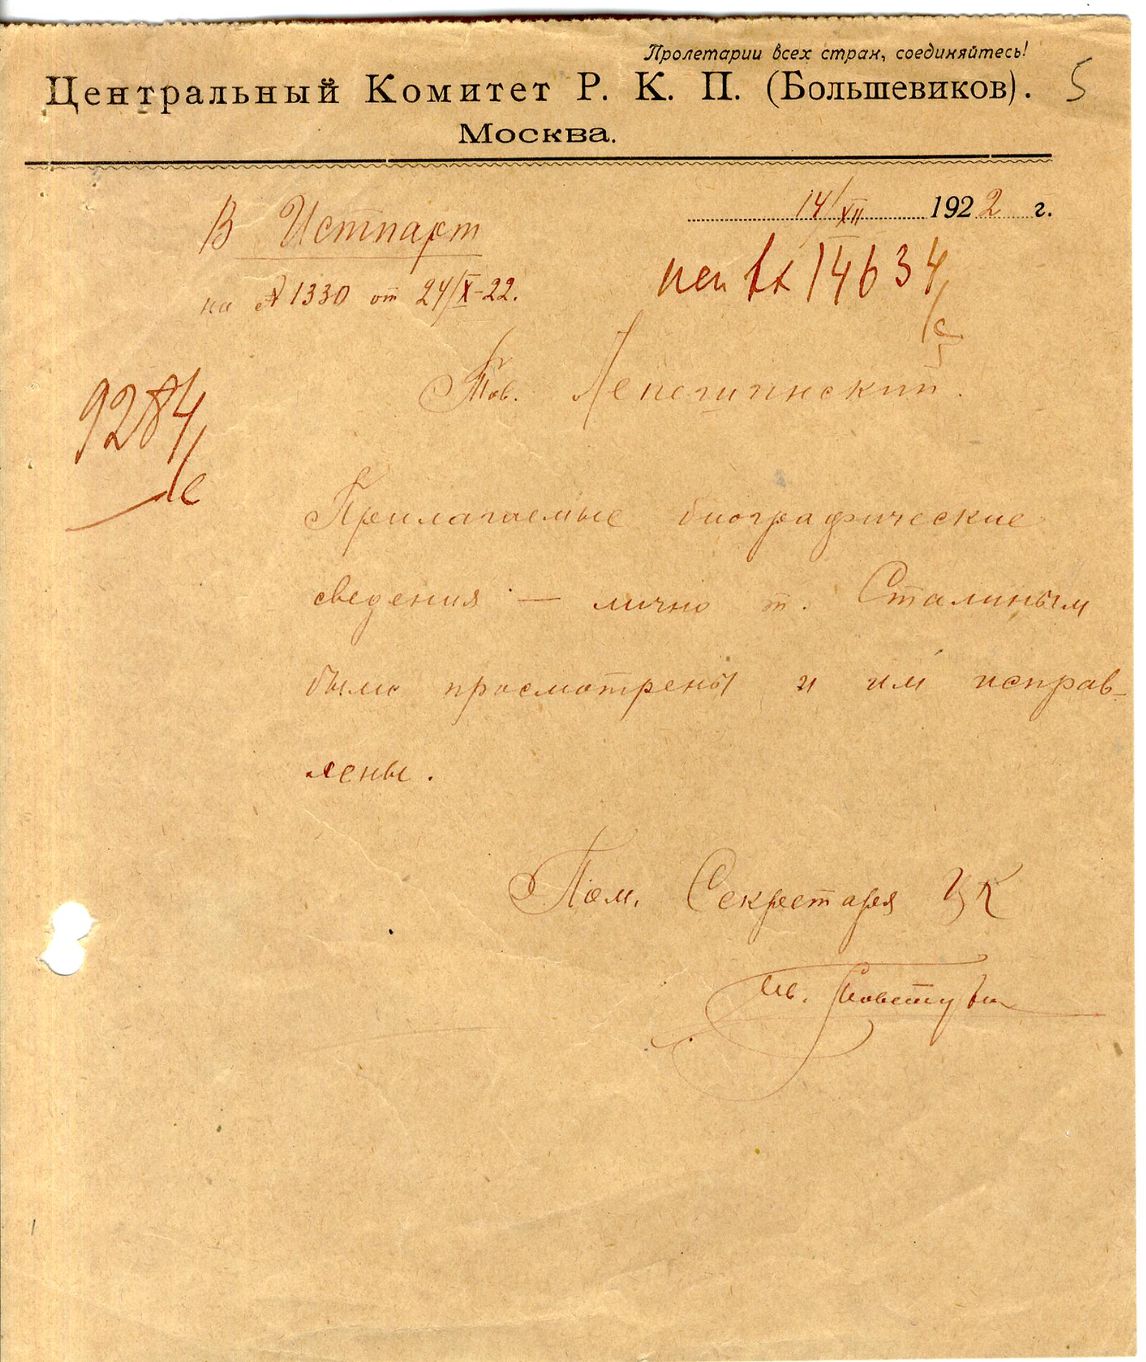 Пролетарии всех стран, соединяйтесь!
Центральный Комитет Р. К. П. (Большевиков). 5
Москва.
14/XII 1922 г.
В Истпарт
на № 1330 от 24/X-22.
14634
Тов. Лепешинский.
9284/с
Прилагаемые биографические
сведения — лично т. Сталиным
были просмотрены и им исправ-
лены.
Пом. Секретаря ЦК
Ив. Товстуха